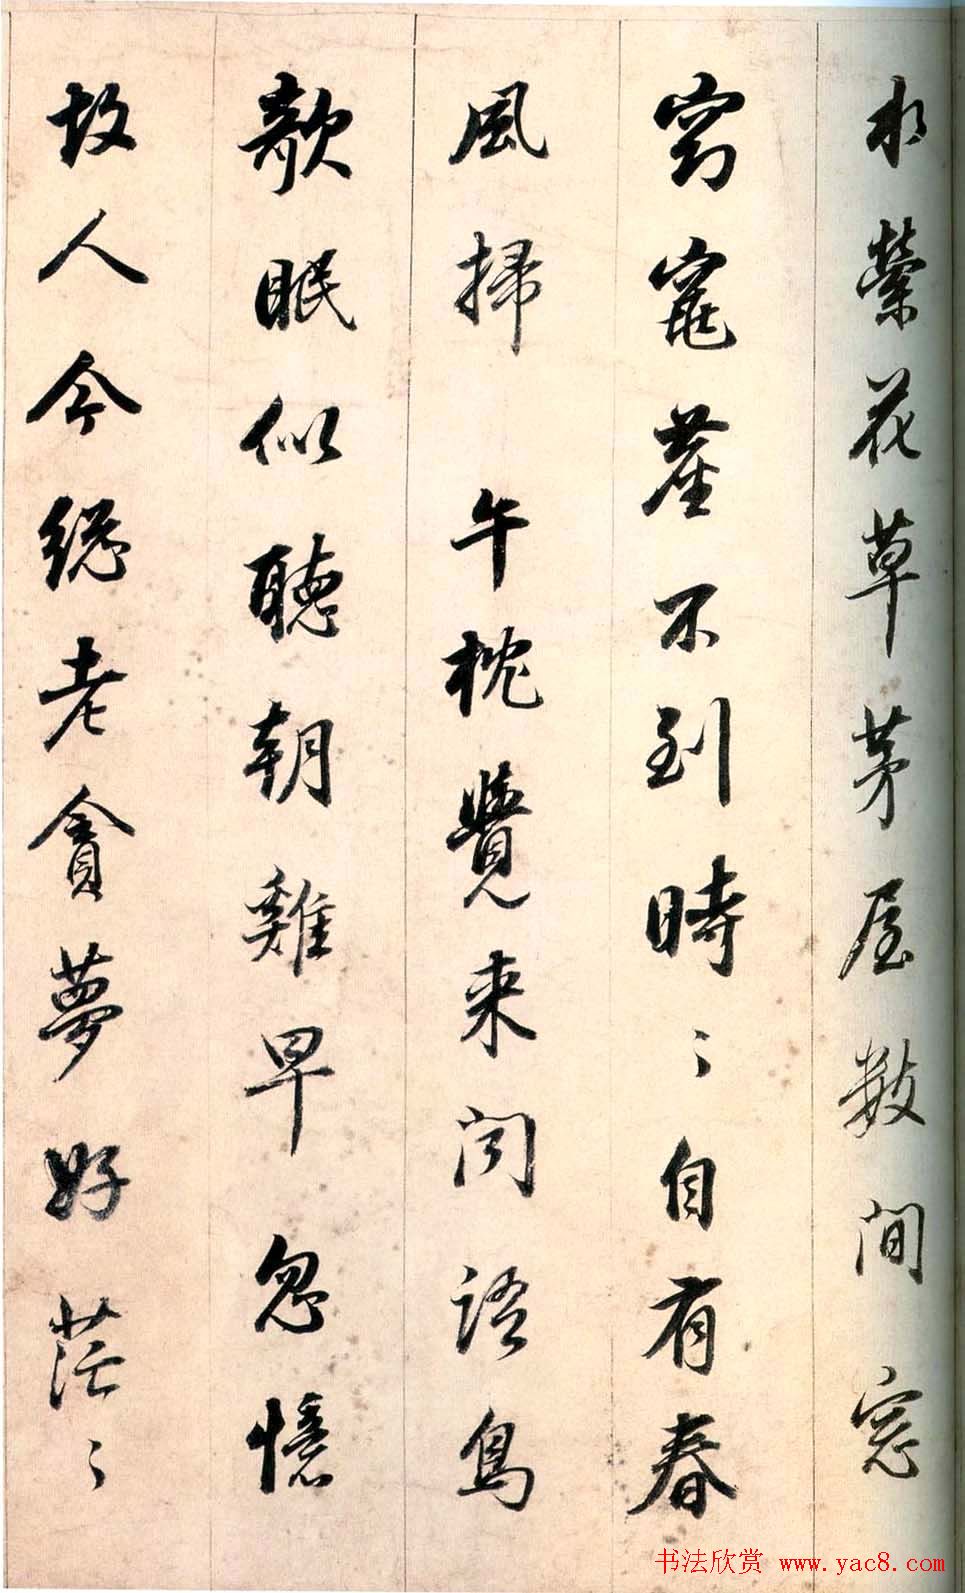 水縈花草茅屋数間窓
窈窕塵不到時〻自有春
風掃 午枕覺来聞語鳥
欹眠似聽朝雞早忽憶
故人今總老貪夢好茫〻
书法欣赏 www.yac8.com